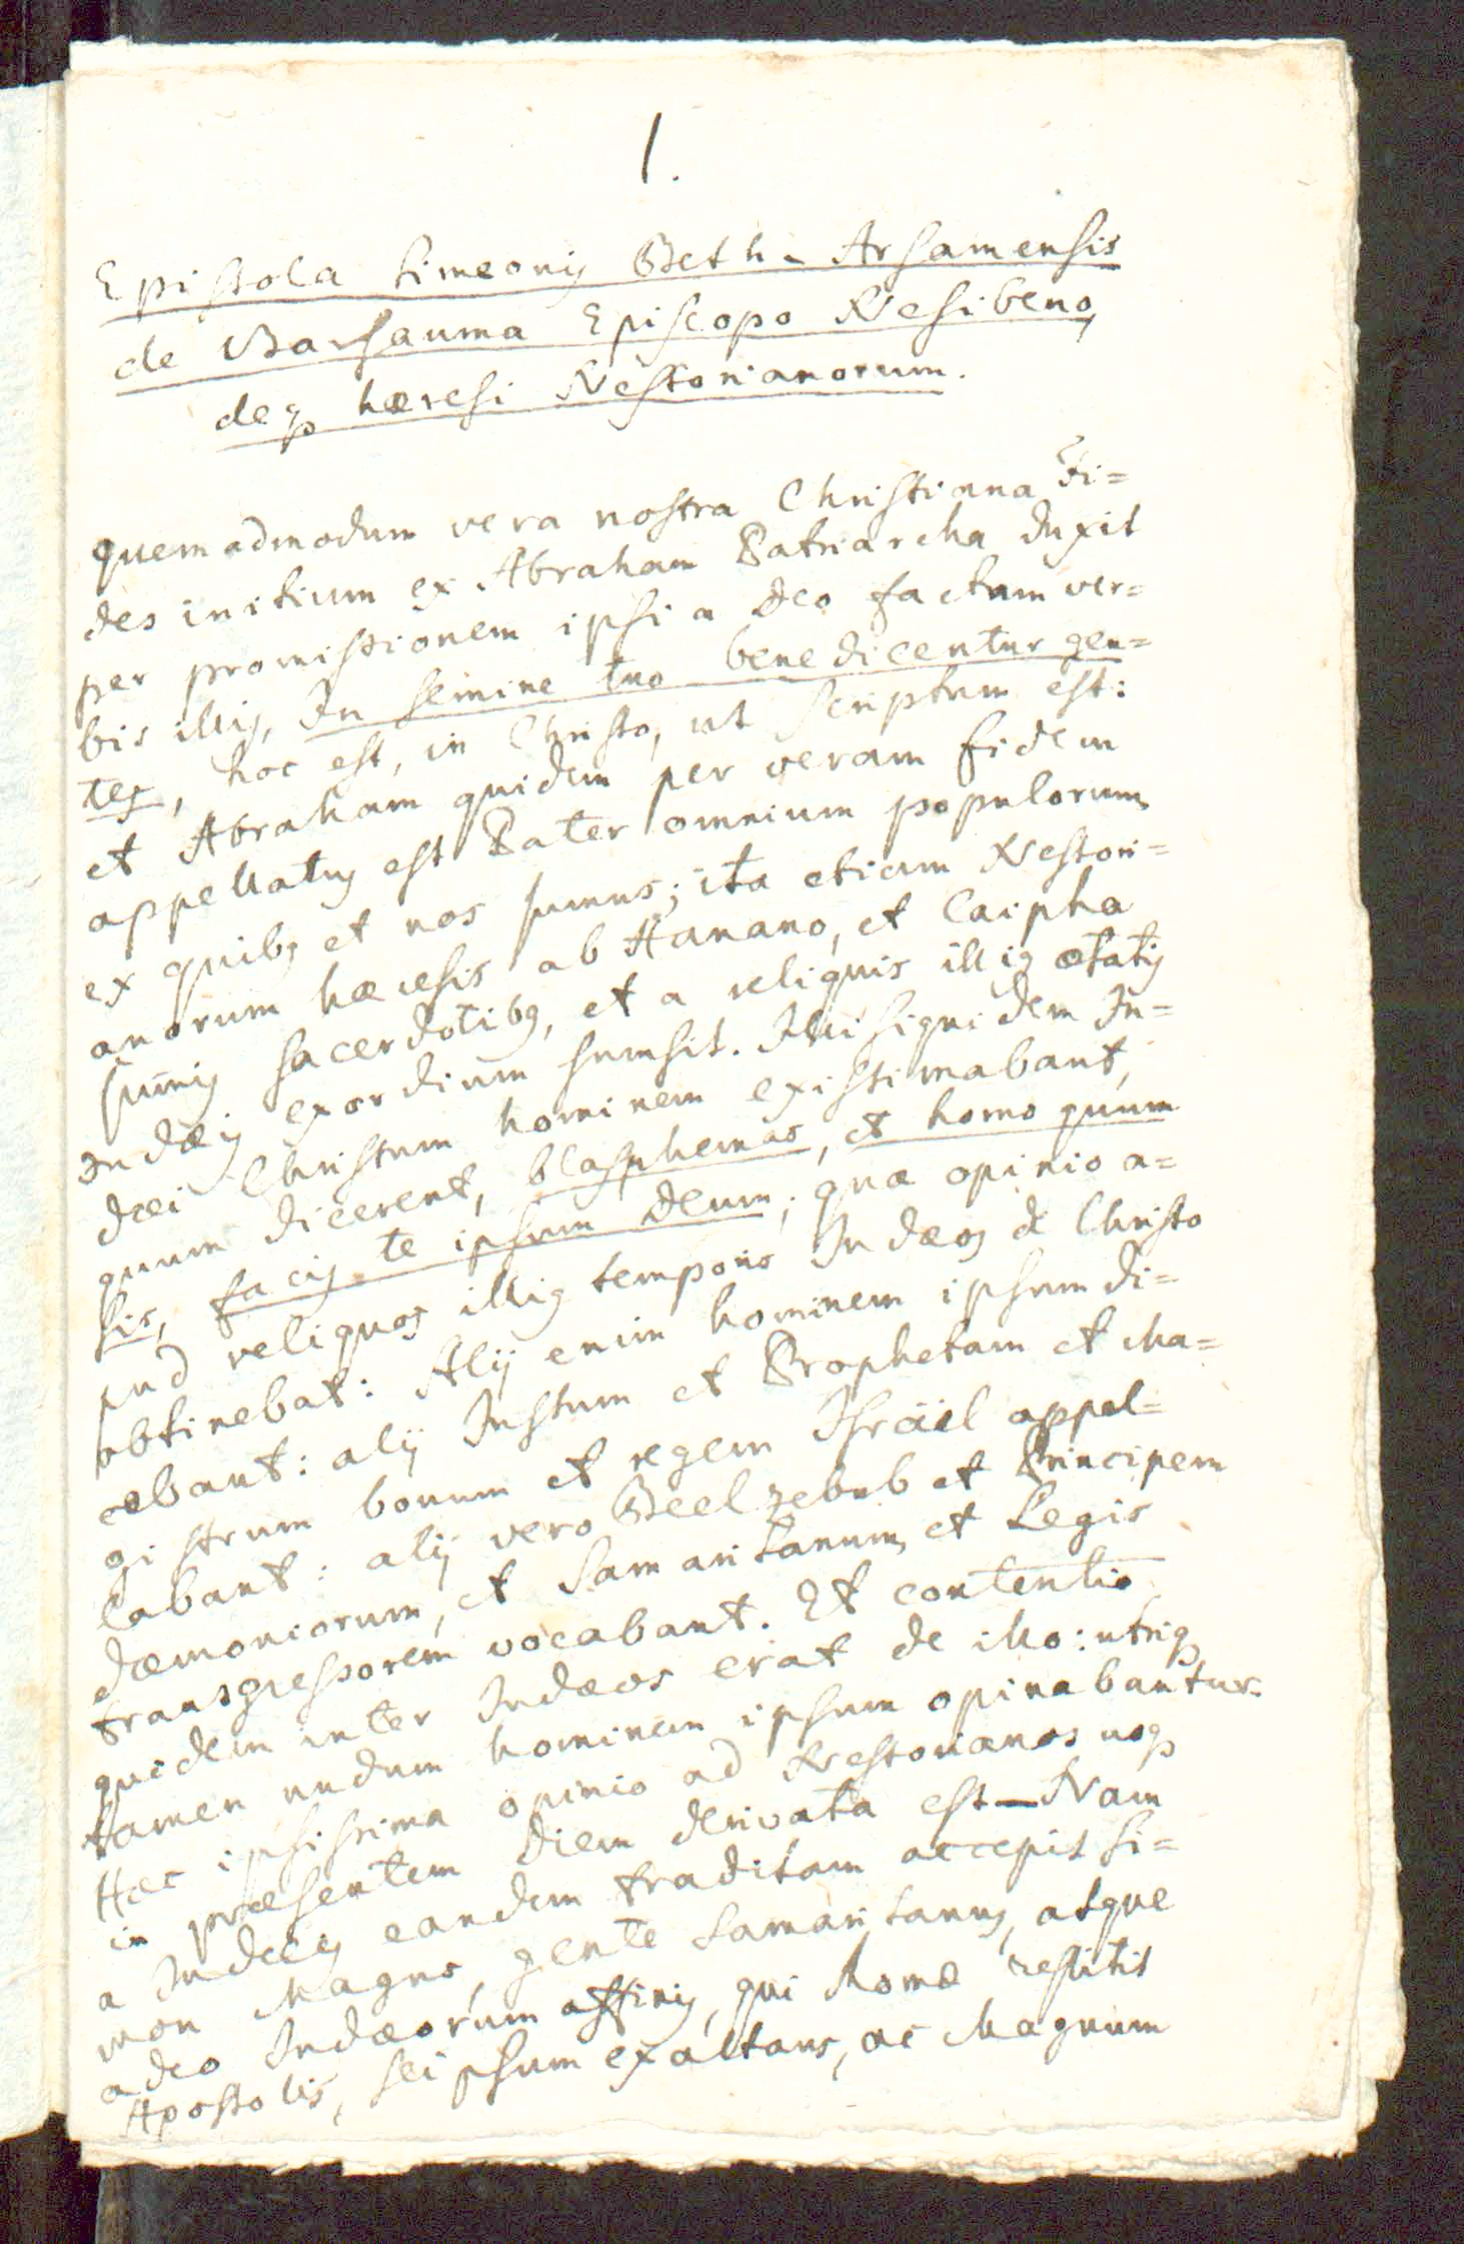 1.
Epistola Simeonis Beth-Arsamensis
de Barsauma Episcopo Nesibeno,
deq₃ hæresi Nestorianorum.
Quemadmodum vera nostra Christiana Fi=
des initium ex Abraham Patriarcha duxit
per promissionem ipsi a Deo factam ver=
bis illis, In semine tuo benedicentur gen=
tes, hoc est, in Christo, ut scriptum est:
et Abraham quidem per veram fidem
appellatus est Pater omnium populorum,
ex quibꝫ et nos sumus; ita etiam Nestori=
anorum hæresis ab Hanano, et Caipha
sum̄is sacerdotibꝫ, et a reliquis illiꝰ ætatis
Judæis exordium sumsit. Illi siquidem Ju=
dæi Christum hominem existimabant,
quum dicerent, blasphemas, et homo quum
sis, facis te ipsum Deum; quæ opinio a=
pud reliquos illiꝰ temporis Judæos de Christo
obtinebat: Alij enim hominem ipsum di=
cebant: alij Justum et Prophetam et Ma=
gistrum bonum et regem Israël appel=
labant: alij vero Beelzebub et Principem
dæmoniorum, et Samaritanum, et Legis
transgressorem vocabant. Et contentio
quidem inter Judæos erat de illo: utriq₃
tamen nudum hominem ipsum opinabantur.
Hæc ipsissima opinio ad Nestorianos usq₃
in præsentem diem derivata est — Nam
a Judæis eandem traditam accepit Si=
mon Magus, gente Samaritanus, atque
adeo Judæorum affinis, qui Romæ restitit
Apostolis, seipsum exaltans, ac Magnum